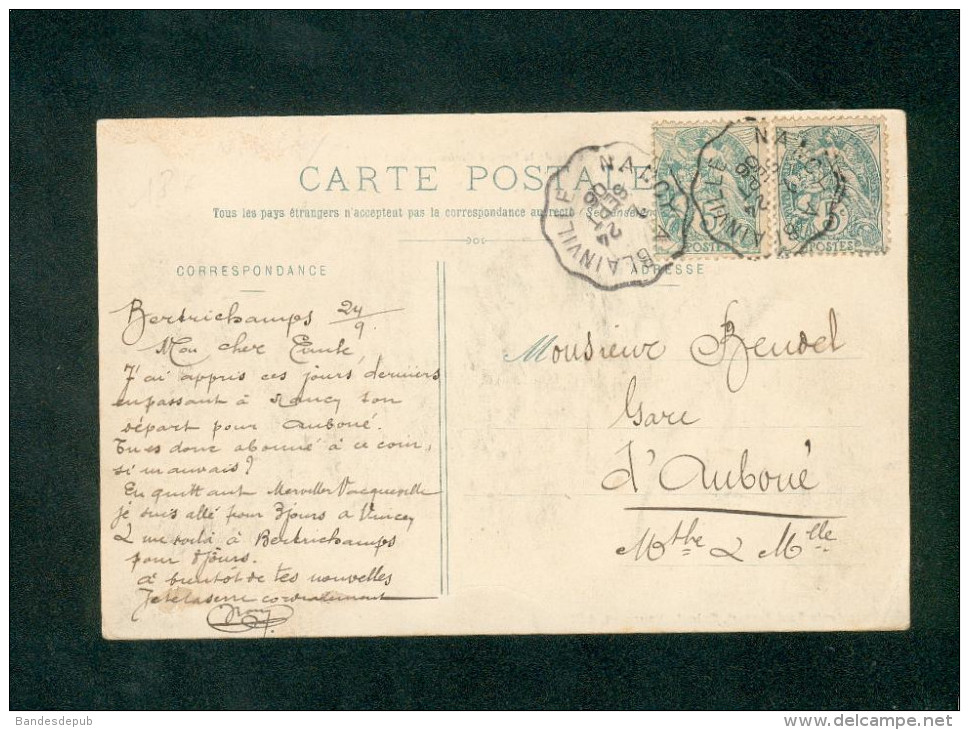 CARTE POSTALE
Tous les pays étrangers n'acceptent pas la correspondance au recto (Se renseigner
CORRESPONDANCE
Bertrichamps 24/9.
Mon cher
J'ai appris ces jours derniers
en passant à Nancy ton
départ pour Auboué.
Tu es donc abonné à ce coin,
si mauvais?
En quittant Merviller Vacqueville
je suis allé pour 3 jours à Vincey
& me voilà à Bertrichamps
pour 8 jours.
à bientôt de tes nouvelles
Je te la serre cordialement
ADRESSE
Monsieur Bendel
Gare
d'Auboué
Mthe & Mlle
NANCY A BLAINVILLE
24 SEPT
NANCY A B
AINVILLE
POSTES
POSTES
Bandesdepub
www.delcampe.net